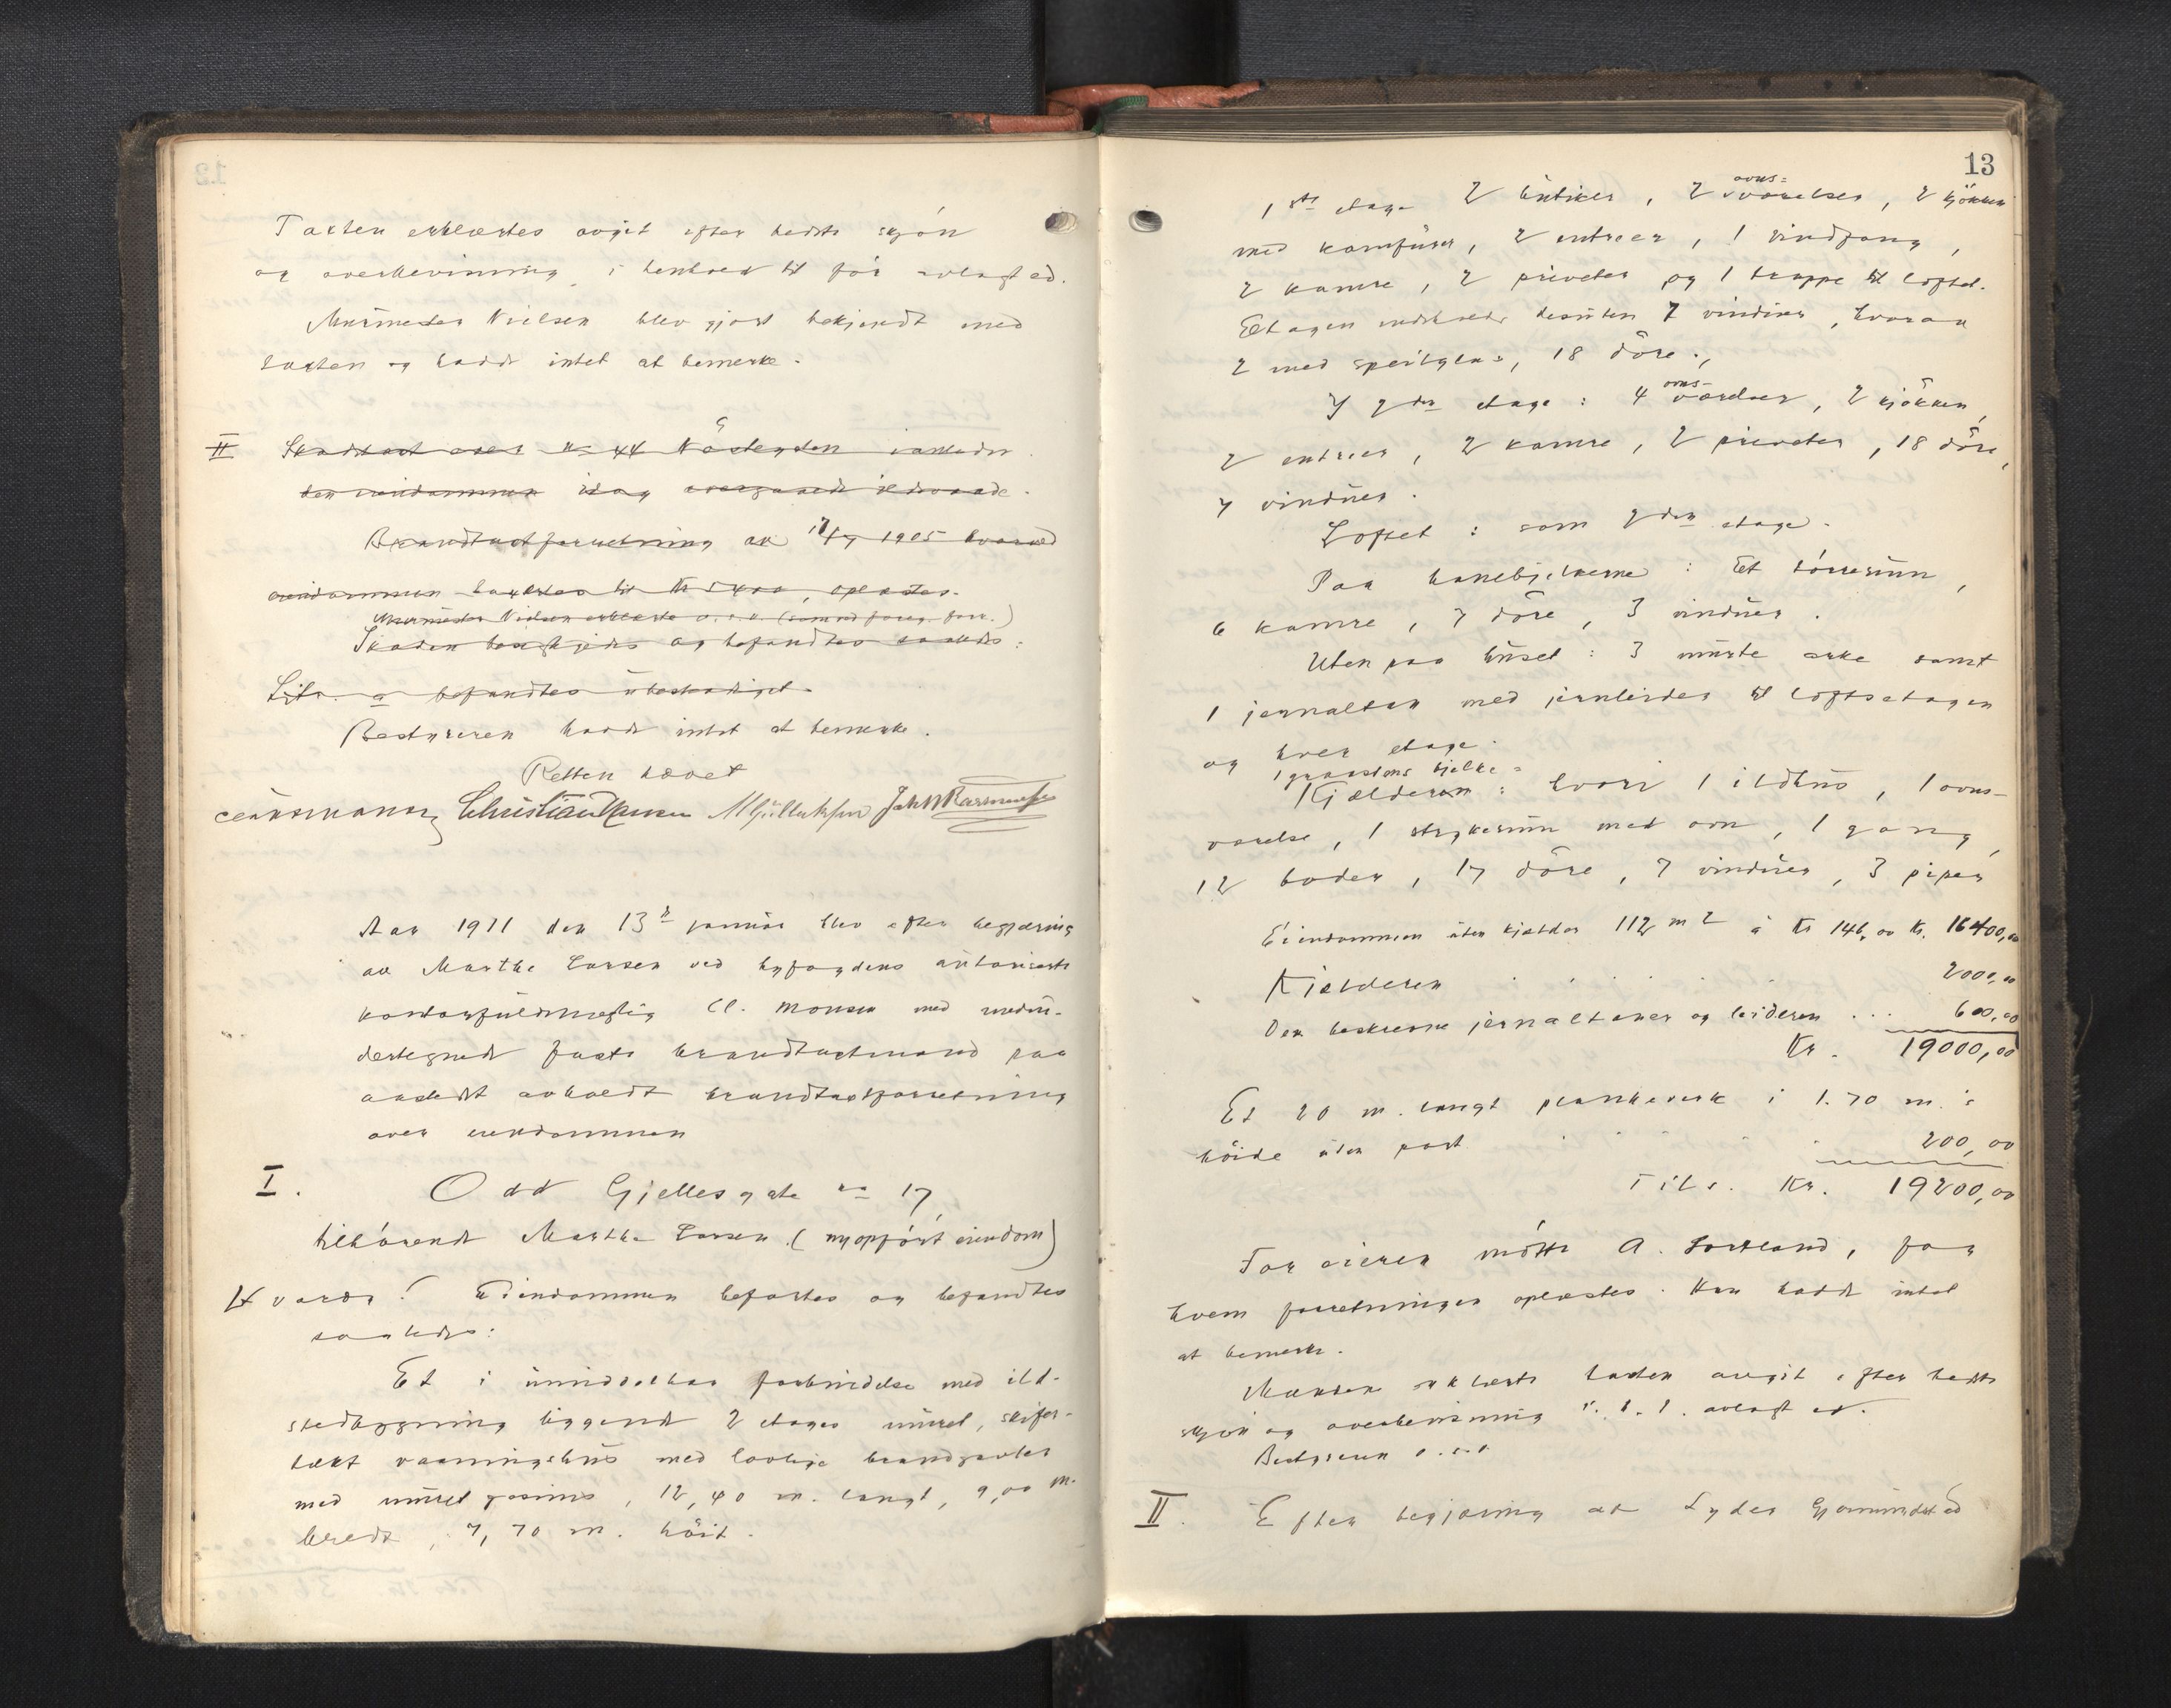 Taxten erklærtes avgit efter bedste skjön
og overbevisning i henhold til för avlagt ed.
Murmester Nielsen blev gjort bekjendt med
taxten og hadde intet at bemerke.
II Skadetaxt over no 44 Nöstegaten
den eiendommen idag overgaaede ildsvaade.
Brandtaxtforretning av 17/7 1905 hvorved
eiendommen taxertes til Kr 5400, oplæstes.
Murmester Nielsen erklærte o.s.v. (som ved foreg. forr.)
Skaden besigtigedes og befandtes saaledes:
Litr. a befandtes ubeskadiget.
Bestyreren hadde intet at bemerke.
Retten hævet
Cl Monsen Christian Jahn Rasmussen
Aar 1911 den 13de januar blev efter begjæring
av Marthe Larsen ved byfogdens autoriserte
kontorfuldmægtig Cl. Monsen med medun-
dertegnede faste brandtaxtmænd paa
aastedet avholdt brandtaxtforretning
over eiendommen
I. Odd Gjellesgate no 17,
tilhörende Marthe Larsen (nyopfört eiendom)
Eiendommen befartes og befandtes
saaledes:
Et i umiddelbar forbindelse med ild-
stedbygning liggende 2 etages muret, skifer-
tækt vaaningshus med lovlige brandgavler
med muret gesims, 12,40 m. langt, 9,00 m.
bredt, 7,70 m. höit.
13
1ste etage 2 butiker, 2 ovns=værelser, 2 kjökken
med komfurer, 2 entreer, 1 vindfang,
2 kamre, 2 priveter og 1 trappe til loftet.
Etagen indeholder desuten 7 vinduer, hvorav
2 med speilglas, 18 döre.
I 2den etage: 4 ovns-værelser, 2 kjökken,
2 entreer, 2 kamre, 2 priveter, 18 döre,
7 vinduer.
Loftet: som 2den etage.
Paa hanebjelkerne: Et törrerum,
6 kamre, 7 döre, 3 vinduer.
Uten paa huset: 3 murte arke samt
1 jernaltan med jernleider til loftsetagen
og hver etage.
1 graastens hjelke=
Kjelderen: hvori 1 ildhus, 1 ovns-
værelse, 1 strykerum med ovn, 1 gang,
12 boder, 17 döre, 7 vinduer, 3 piper
Eiendommen uten kjelder 112 m2 à Kr 146,00 Kr. 16400,00
Kjelderen . . . . . 2000,00
Den beskrevne jernaltaner og leideren . . . 600,00
Kr. 19000,00
Et 20 m. langt plankeverk i 1.70 m.s
höide uten port . . . . . 200,00
Tils. Kr. 19200,00
For eieren mötte A. Lortland, for
hvem forretningen oplæstes. Han hadde intet
at bemerke.
Mænden erklærte taxten avgit efter bedste
skjön og overbevisning avlagt ed.
Bestyreren o.s.v.
II. Efter begjæring av Lyder